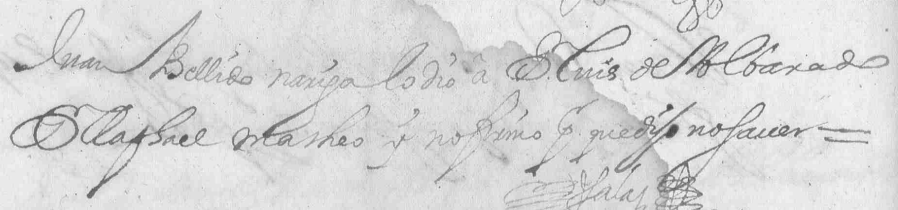 Juan Bellido nariga lo dio â D. Luis de Albarado
D Raphael matheo y no firmo p. que dijo no saver =
Salas